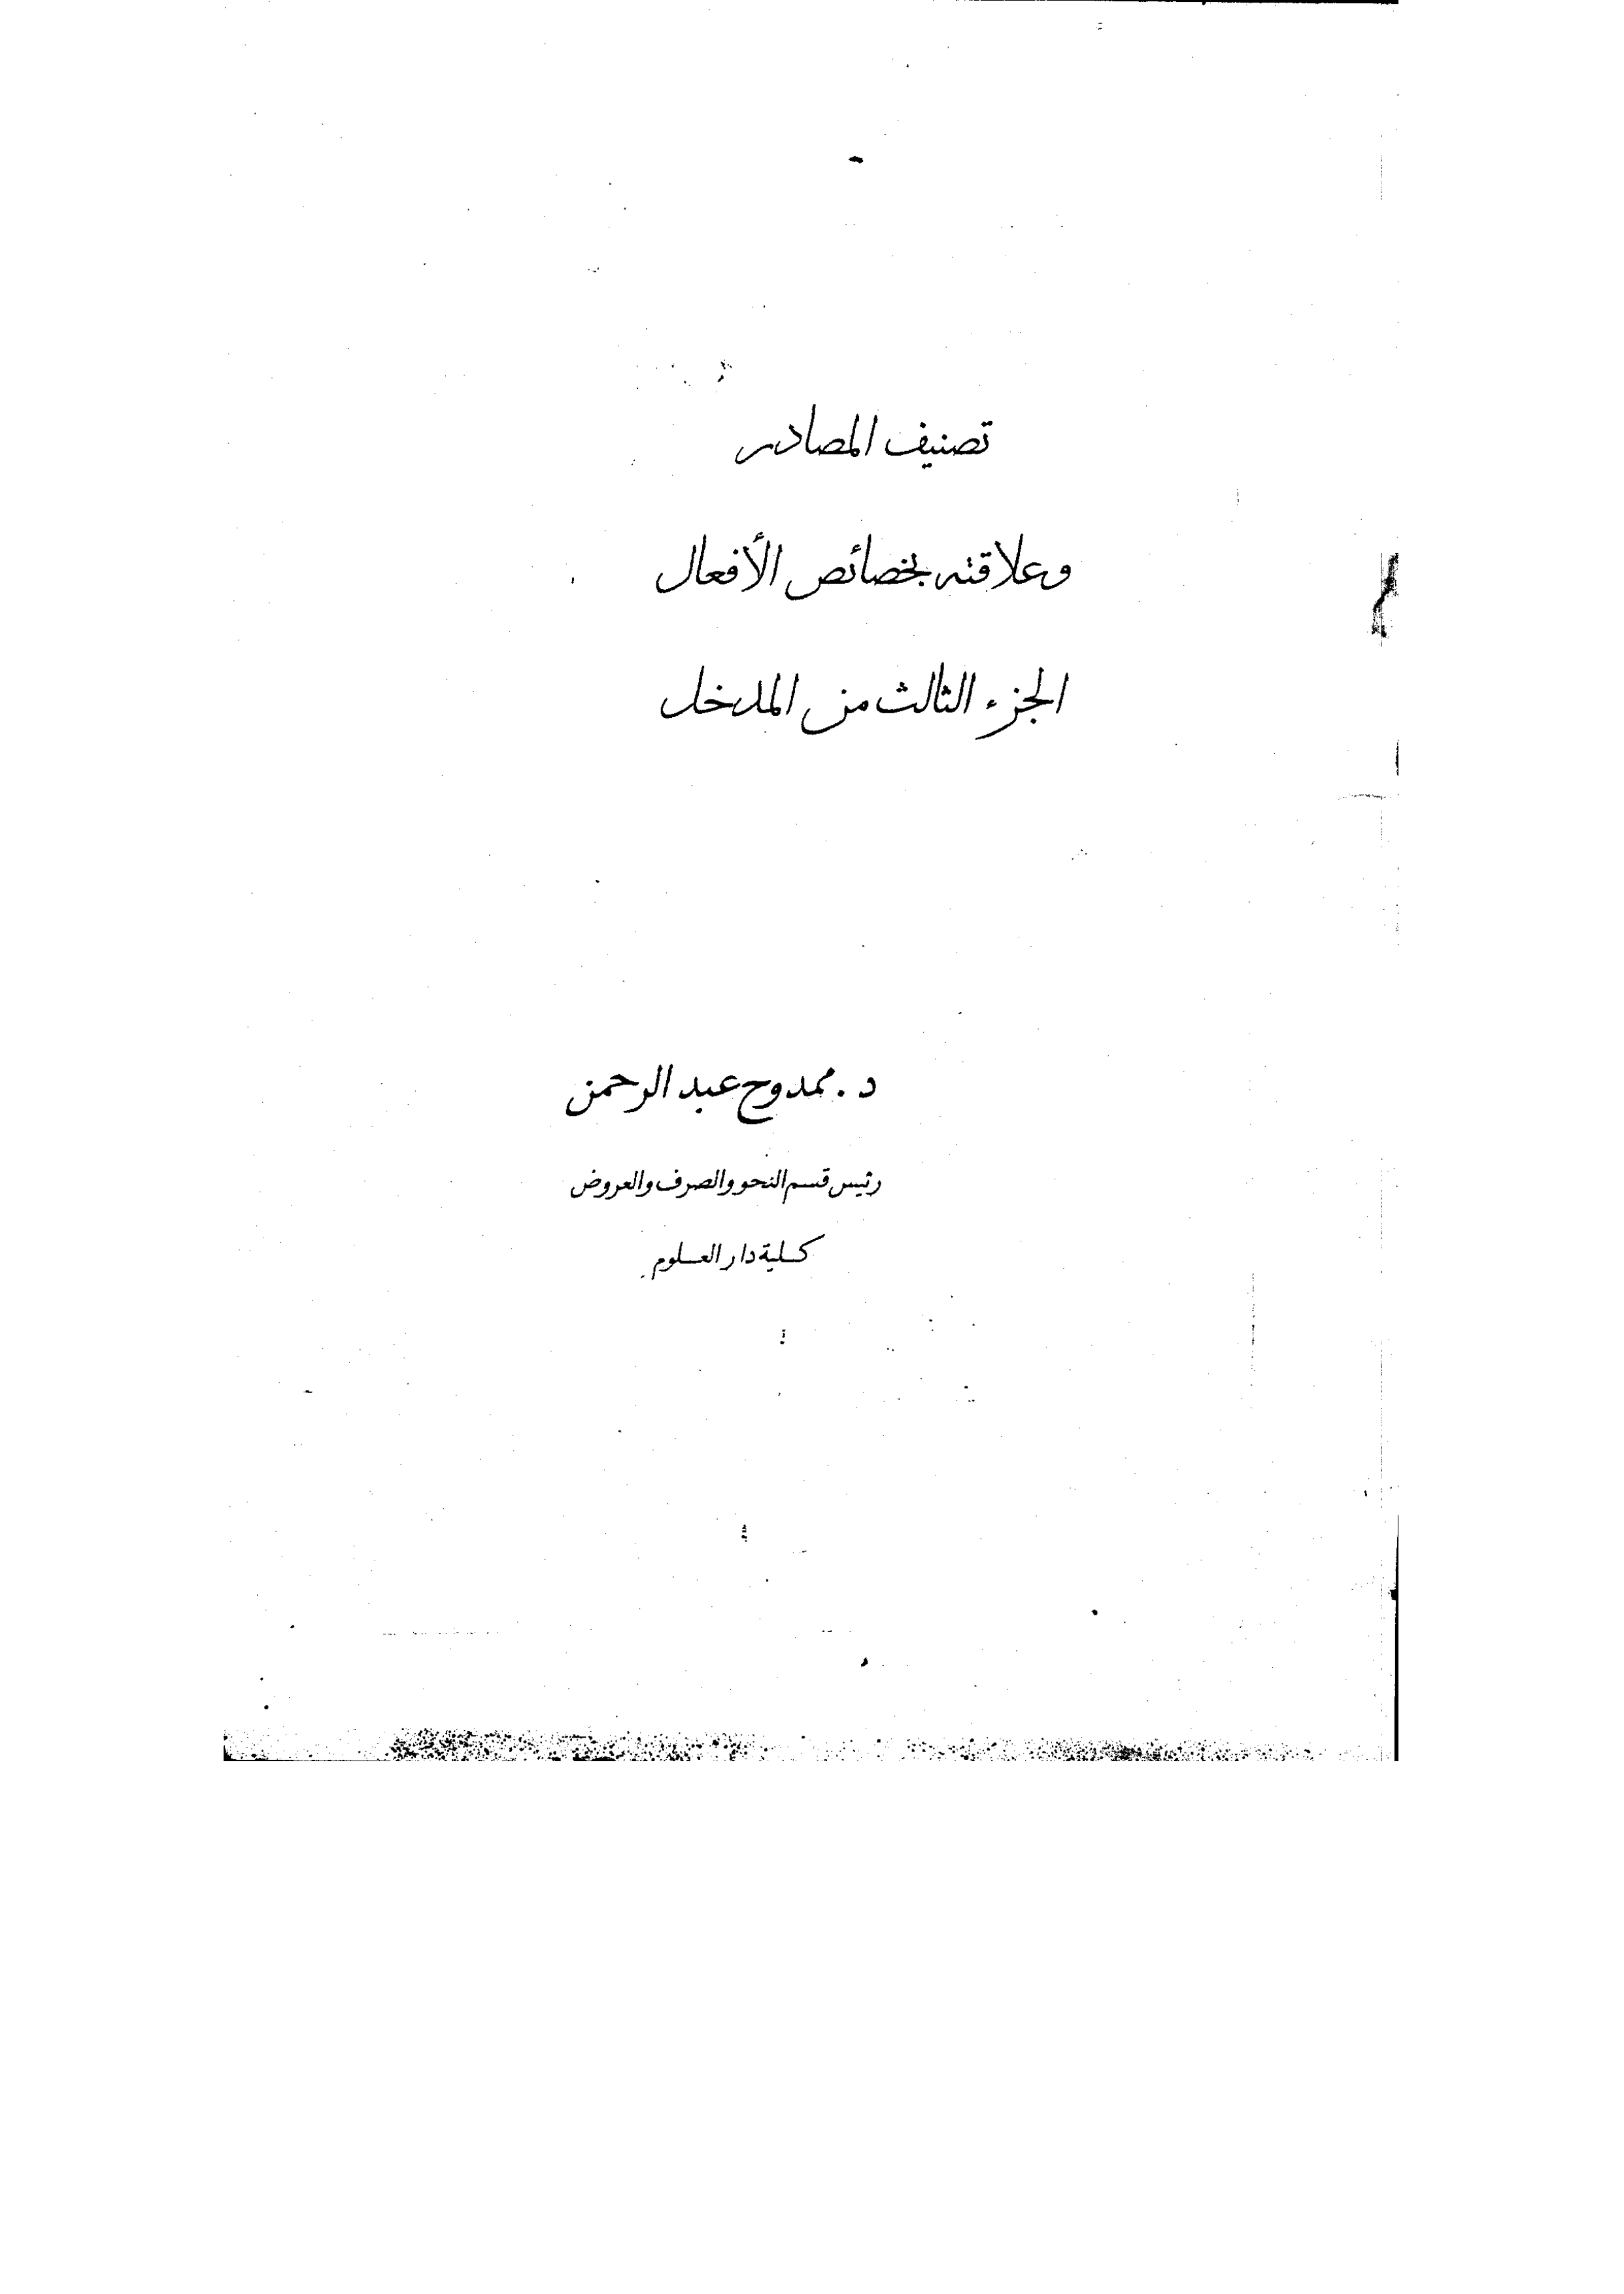 تصنيف المصادر
وعلاقته بخصائص الأفعال
الجزء الثالث من المدخل
د. ممدوح عبد الرحمن
رئيس قسم النحو والصرف والعروض
كلية دار العلوم